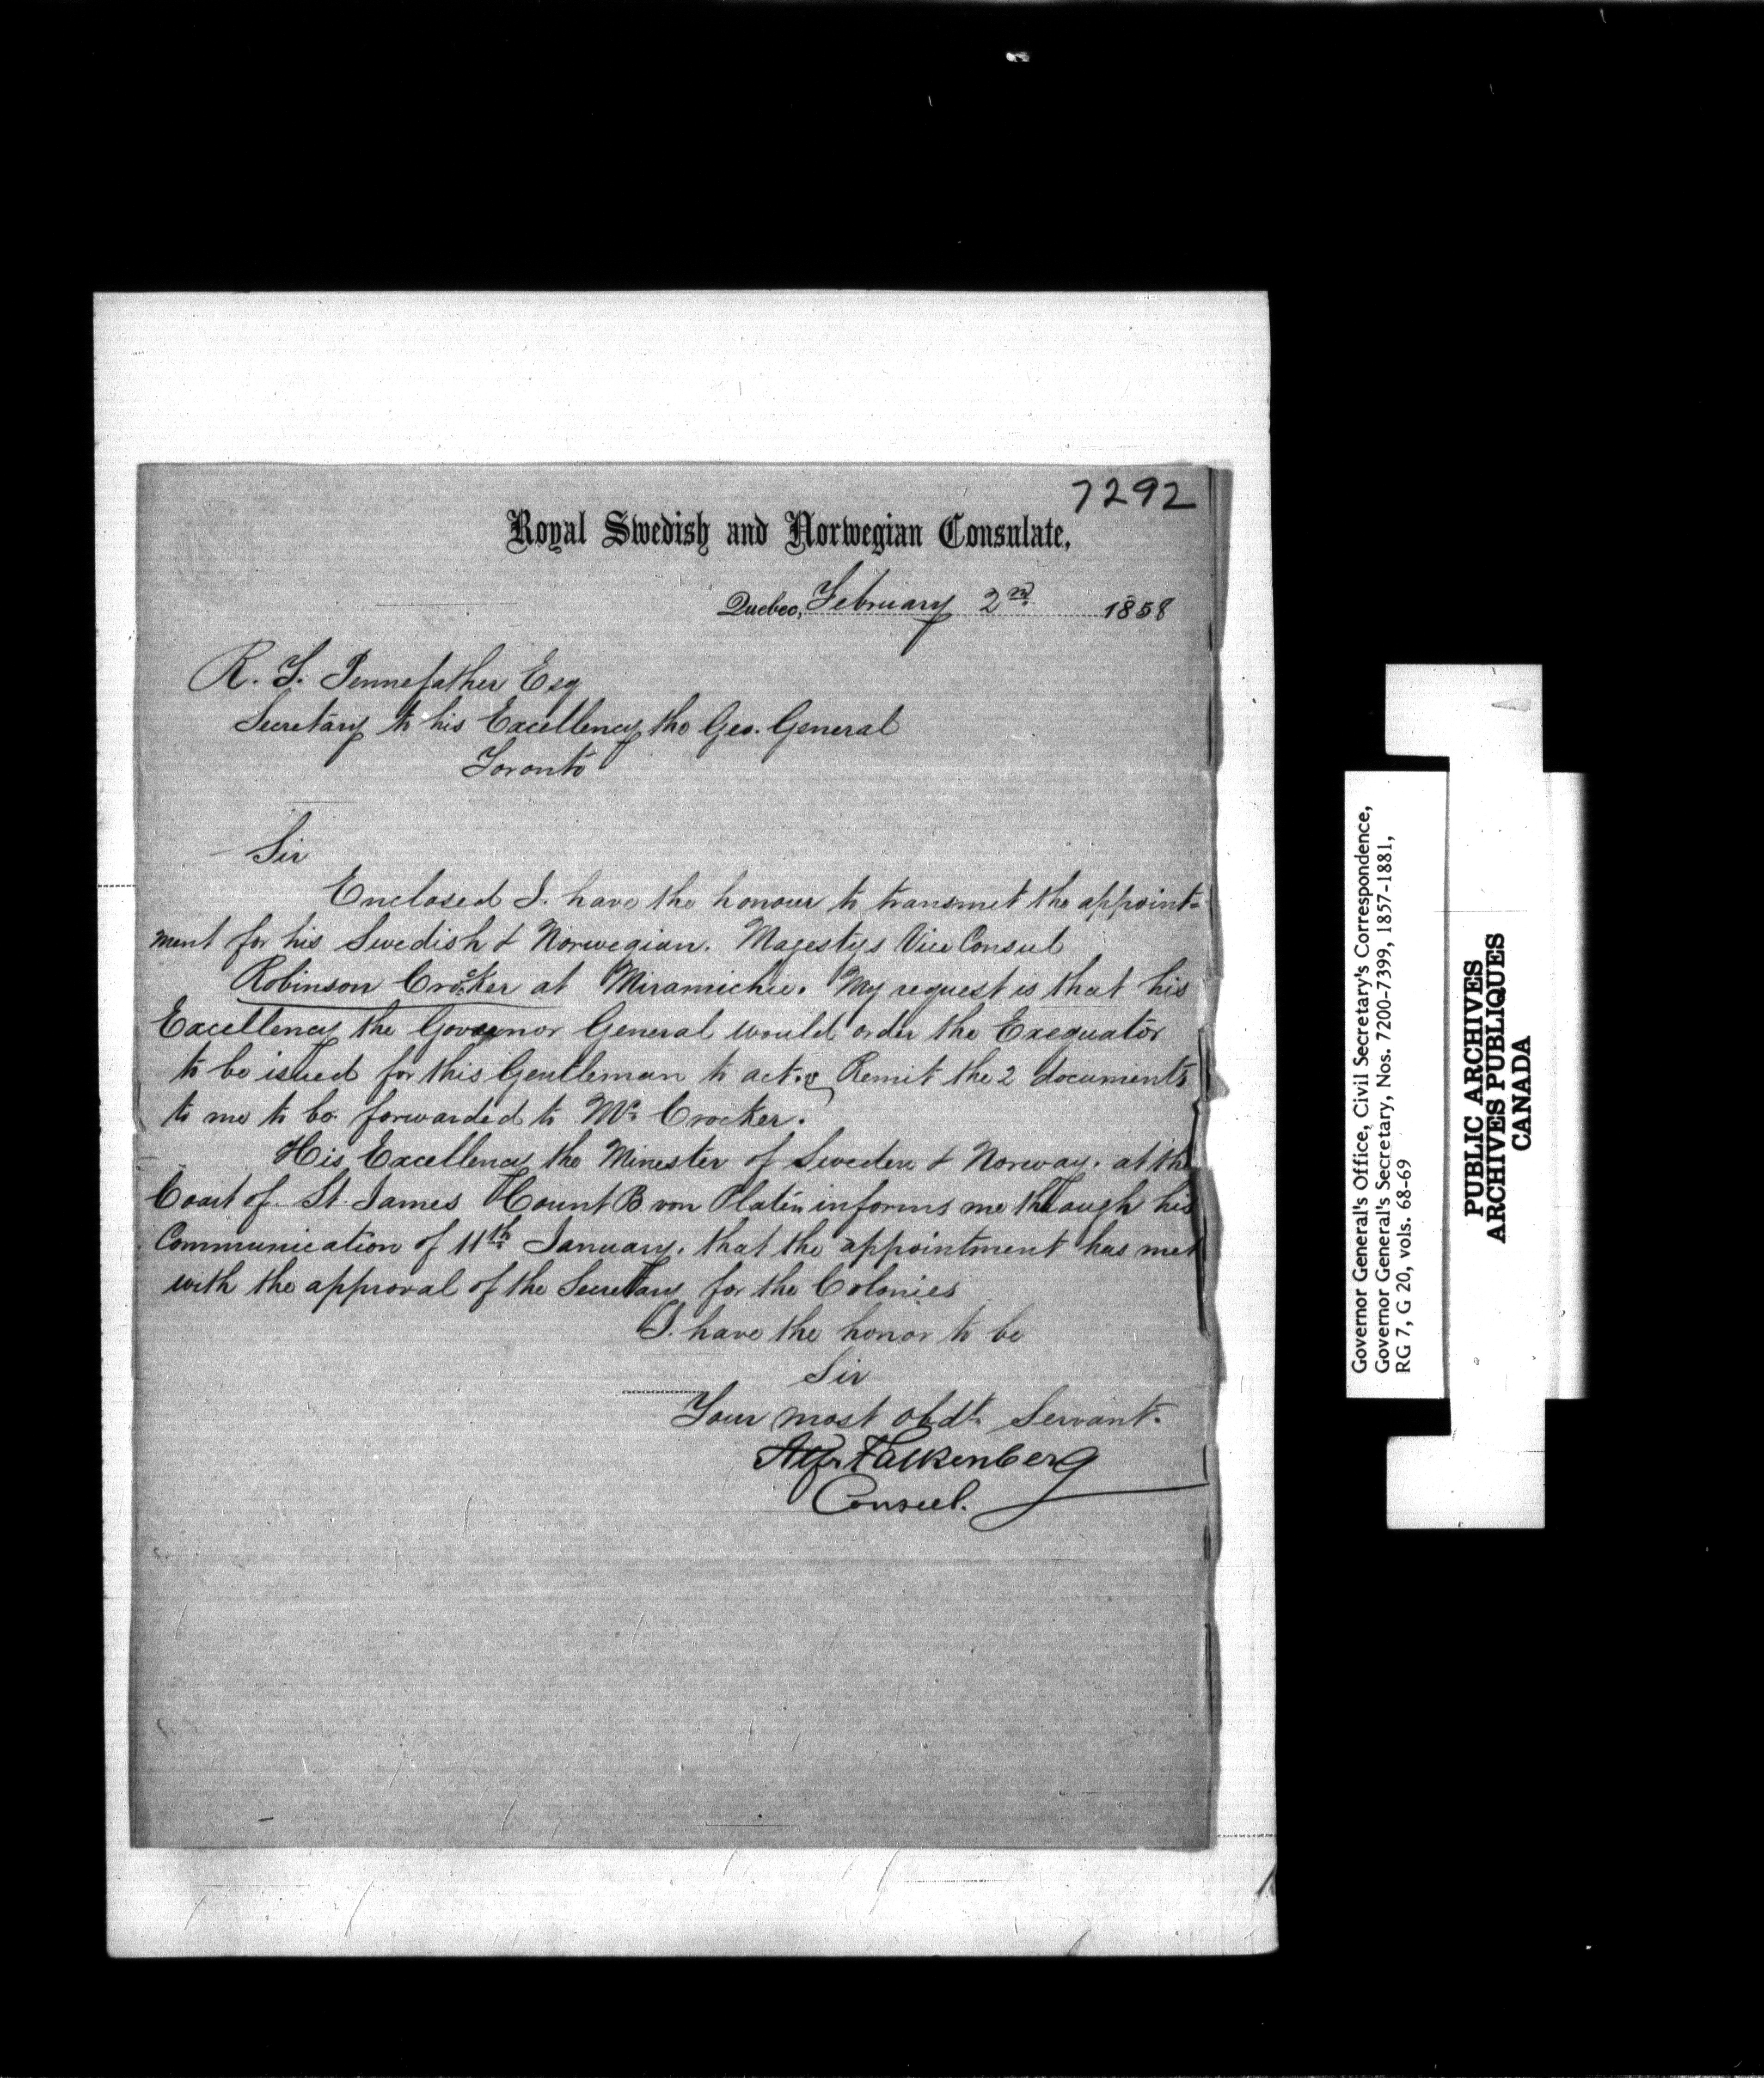 7292
Royal Swedish and Norwegian Consulate,
Quebec, February 2nd 1858
R. T. Pennefather Esq
Secretary to his Excellency the Gov. General
Toronto
Sir
Enclosed I. have the honour to transmit the appoint=
ment for his Swedish & Norwegian. Magestys Vice Consul
Robinson Crocker at Miramichie. My request is that his
Excellency the Governor General would order the Exequator
to be issued for this Gentleman to act. & Remit the 2 documents
to me to be forwarded to Mr. Crocker.
His Excellency the Minester of Sweden & Norway. at the
Court of. St. James Count B von Platen informs me through his
Communication of 11th January. that the appointment has met
with the approval of the Secretary for the Colonies
I. have the honor to be
Sir
Your most obdt. Servant.
Alfr Falkenberg
Consul.
Governor General's Office, Civil Secretary's Correspondence,
Governor General's Secretary, Nos. 7200-7399, 1857-1881,
RG 7, G 20, vols. 68-69
PUBLIC ARCHIVES
ARCHIVES PUBLIQUES
CANADA